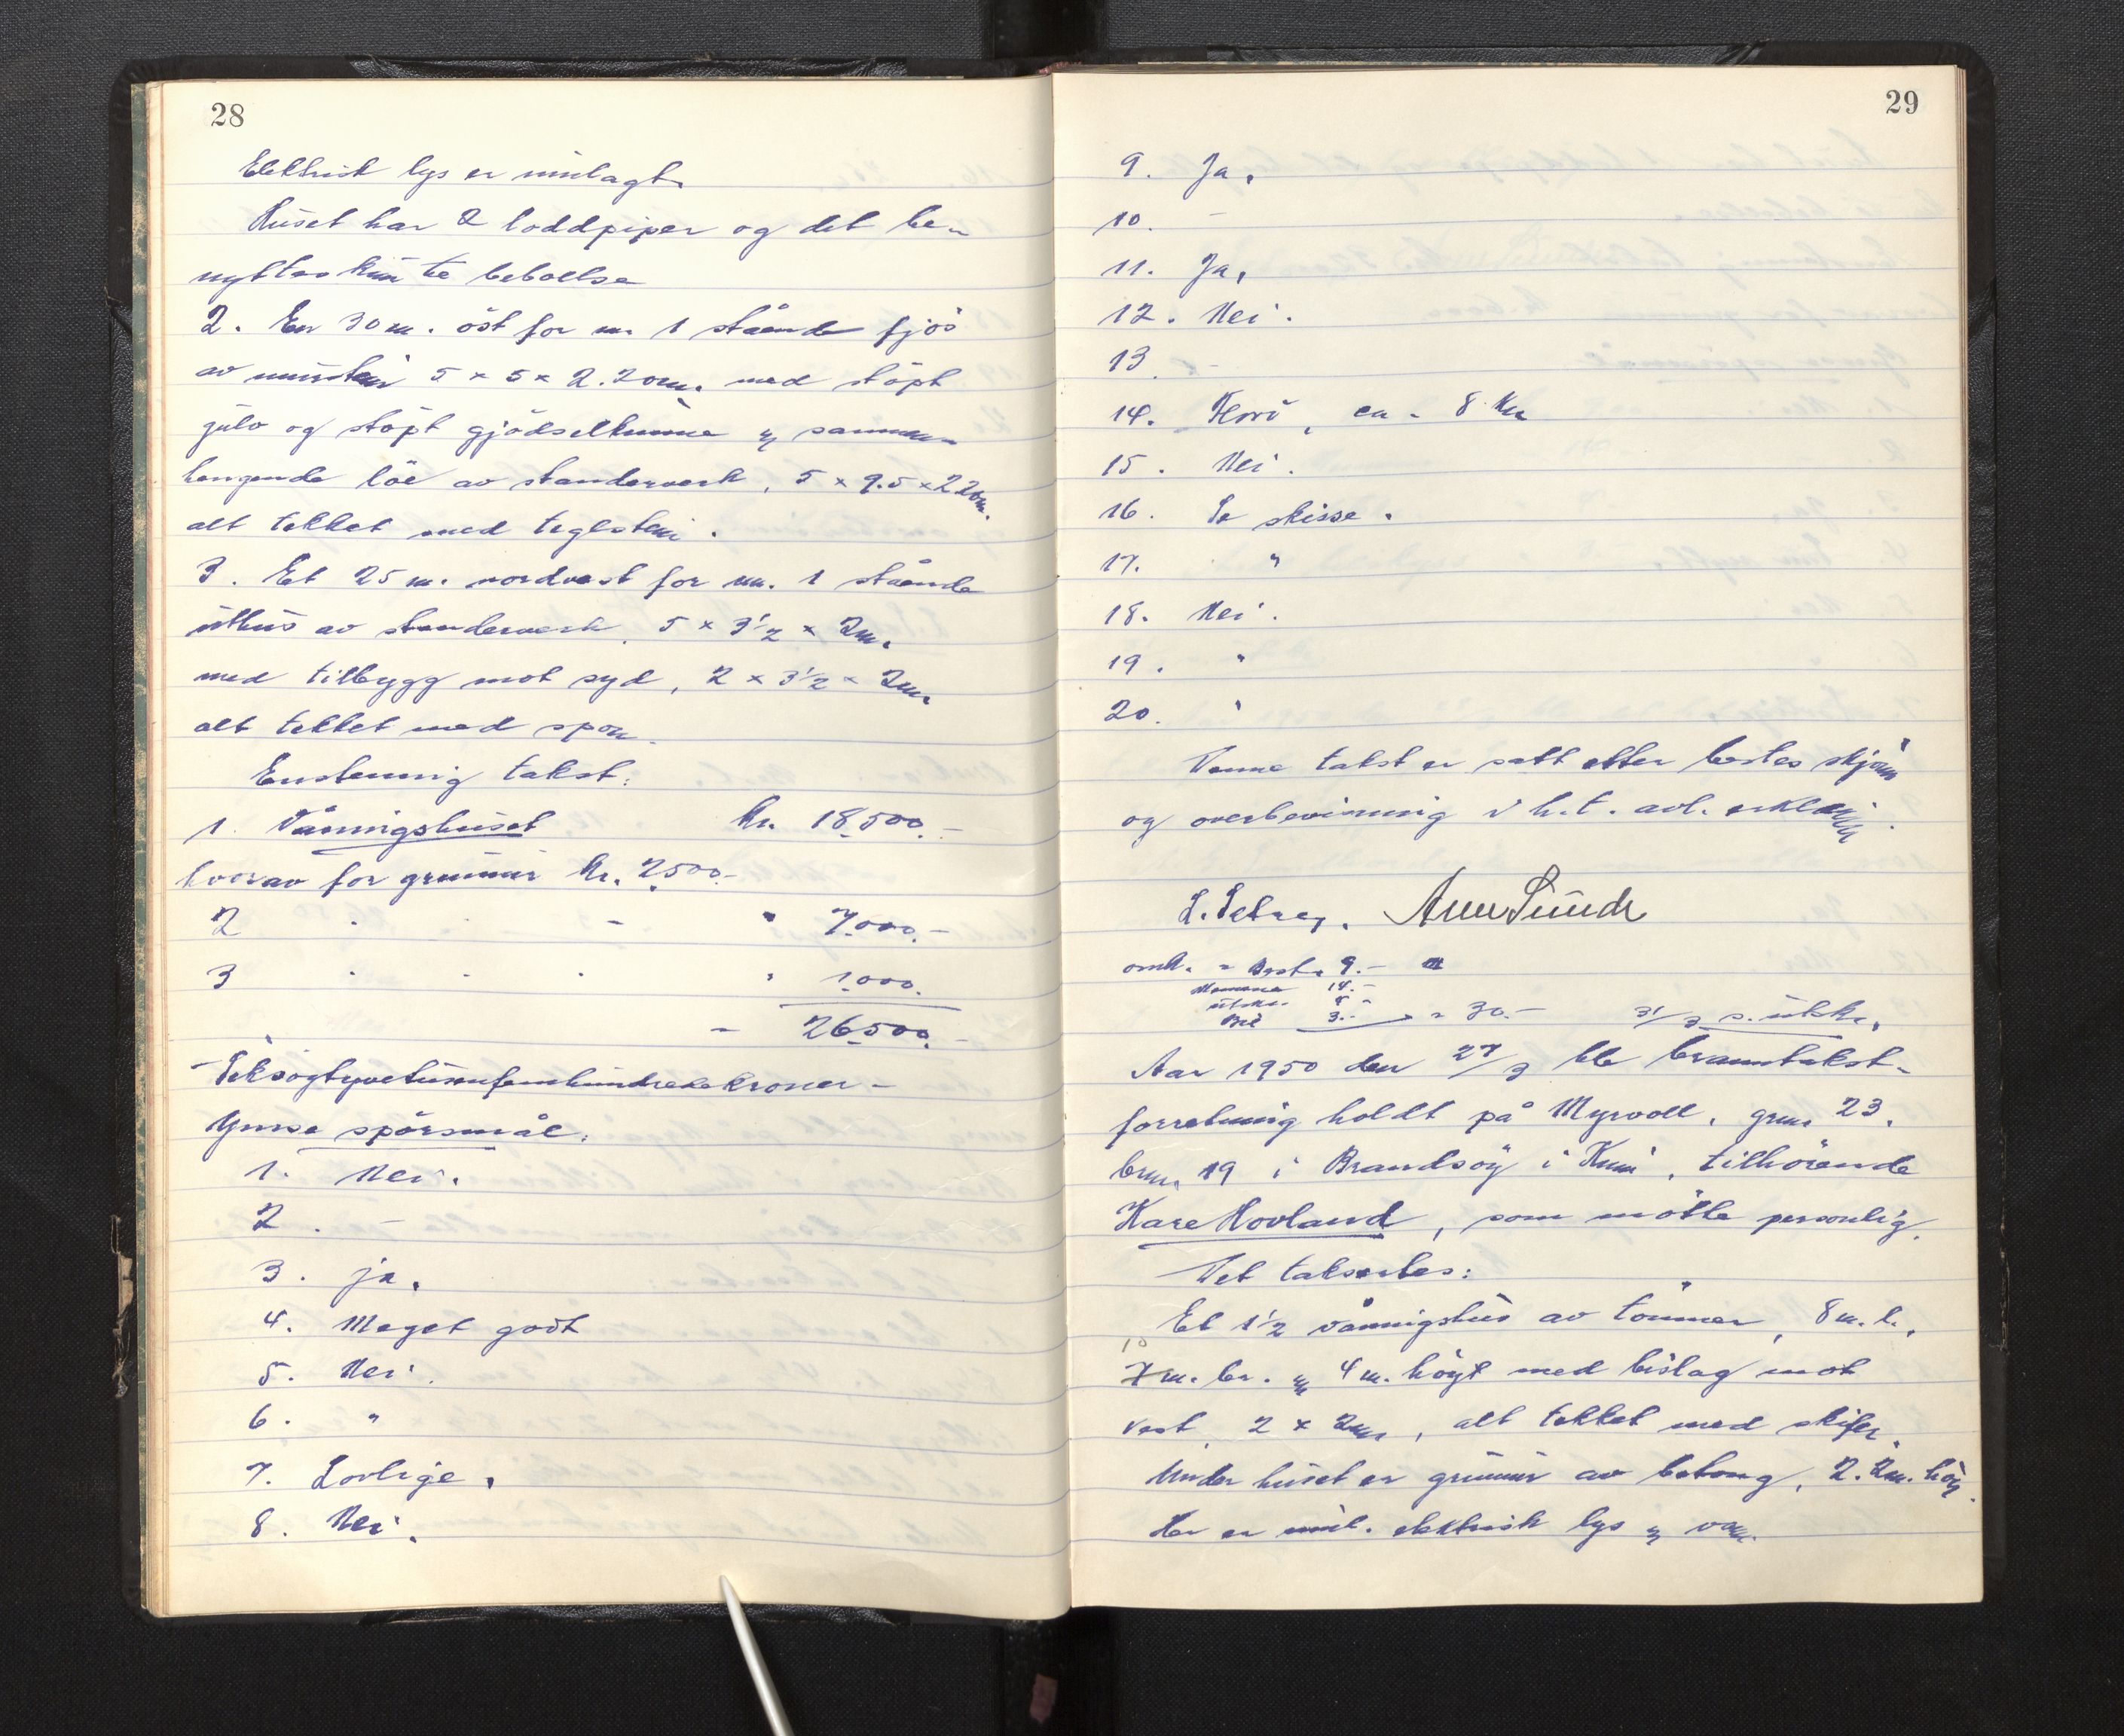 28
Elektrisk lys er innlagt.
Huset har 2 loddpiper og det be-
nyttes kun te beboelse
2. En 30 m. öst for nr. 1 stående fjös
av murstein 5 x 5 x 2.20 m. med stöpt
gulv og stöpt gjödselkumme og sammen-
hengende löe av standerverk, 5 x 9.5 x 2.20 m.
alt tekket med teglstein.
3. Et 25 m. nordvest for nr. 1 stående
uthus av standerverk, 5 x 3 1/2 x 2 m.
med tilbygg mot syd, 2 x 3 1/2 x 2 m.
alt tekket med spon.
Enstemmig takst:
1. Våningshuset kr. 18,500.-
hvorav for grunnmur kr. 2500.-
2 " " " " 7,000.-
3 " " " " 1,000.
- 26,500.-
-Seksogtyvetusenfemhundrede kroner-
Ymse spörsmål:
1. Nei.
2. -
3. ja.
4. Meget godt
5. Nei.
6. "
7. Lovlige.
8. Nei.
29
9. Ja.
10. -
11. Ja.
12. Nei.
13. -
14. Florö, ca. 8 km
15. Nei.
16. Se skisse.
17. "
18. Nei.
19. "
20. "
Denne takst er satt etter beste skjönn
og overbevisning i h.t. avl. erklæring.
L. Sebrey. Arne Sunde
omk. = Best. 9.-
14.-
utskr. 4 -
Bil 3.- = 30.- 31/3 s. utskr.
Aar 1950 den 27/3 ble branntakst-
forretning holdt på Myrvoll, grnr. 23,
brnr. 19 i Brandsöy i Kinn, tilhörende
Kare Hovland, som mötte personlig.
Det takseertes:
Et 1 1/2 våningshus av tömmer, 8 m. l.,
10
7 m. br. og 4 m. höyt med bislag mot
vest, 2 x 2 m, alt tekket med skifer.
Under huset er grunnmur av betong, 2.2 m. höy.
Her er innl. elektrisk lys og vann.